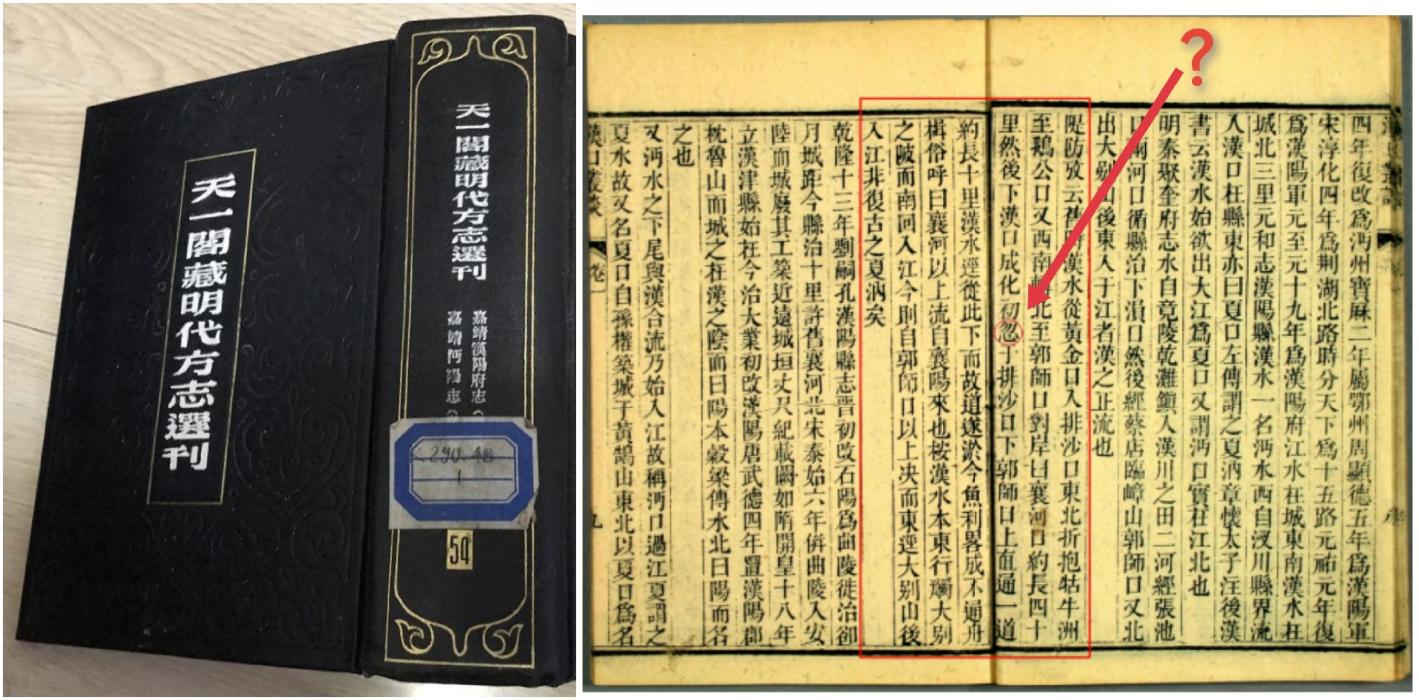 天一閣藏明代方志選刊
天一閣藏明代方志選刊
嘉靖漢陽府志
嘉靖沔陽志
1
54
?
四年復改為沔州寶厤二年屬鄂州周顯德五年為漢陽軍
宋淳化四年為荆湖北路時分天下為十五路元祐元年復
為漢陽軍元至元十九年為漢陽府江水在城東南漢水在
城北三里元和志漢陽縣漢水一名沔水西自汊川縣界流
入漢口在縣東亦曰夏口左傳謂之夏汭章懷太子注後漢
書云漢水始欲出大江為夏口又謂沔口實在江北也
明秦聚奎府志水自竟陵乾灘鎮入漢川之田二河經張池
口兩河口循縣治下溳口然後經蔡店臨嶂山郭師口又北
出大别山後東入于江者漢之正流也
隄防攷云舊時漢水從黃金口入排沙口東北折抱牯牛洲
至鵝公口又西南轉北至郭師口對岸曰襄河口約長四十
里然後下漢口成化初忽于排沙口下郭師口上直通一道
約長十里漢水逕從此下而故道遂淤今魚利畧成不通舟
楫俗呼曰襄河以上流自襄陽來也按漢水本東行觸大别
之陂而南回入江今則自郭師口以上决而東逕大别山後
入江非復古之夏汭矣
乾隆十三年劉嗣孔漢陽縣志晋初改石陽為曲陵徙治卻
月城距今縣治十里許舊襄河北宋泰始六年併曲陵入安
陸而城廢其工築近遠城垣丈尺紀載闕如隋開皇十八年
立漢津縣始在今治大業初改漢陽唐武德四年置漢陽郡
枕魯山而城之在漢之陰而曰陽本穀梁傳水北曰陽而名
之也
又沔水之下尾與漢合流乃始入江故稱沔口過江夏謂之
夏水故又名夏口自孫權築城于黃鵠山東北以夏口為名
漢口叢談 卷一 九